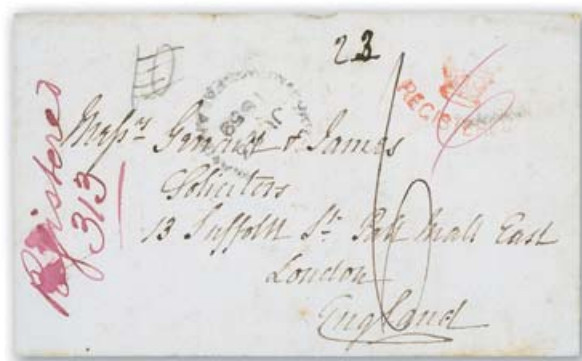 23
REGISTERED
Registered
313
Messrs & James
Soliciters
13 Suffolk St. Pall Mall East
London
England
6